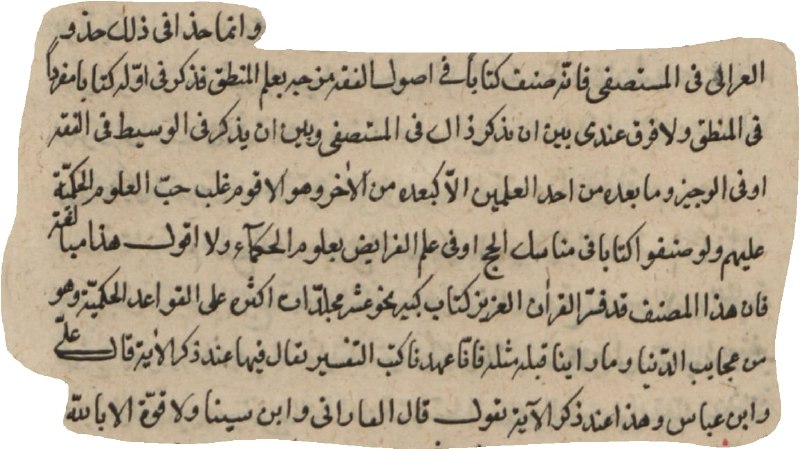 وانما حذا فى ذلك حذو
الغزالى فى المستصفى فانه صنف كتابا فى اصول الفقه مزجه بعلم المنطق فذكر فى اوله كتابا مفردا
فى المنطق ولا فرق عندى بين ان يذكر ذاك فى المستصفى وبين ان يذكر فى الوسيط فى الفقه
او فى الوجيز وما بعده من احد العلمين الا كبعده من الاخر وهولا قوم غلب حبّ العلوم الحكميّة
عليهم ولو صنفوا كتابا فى مناسك الحج او فى علم الفرايض بعلوم الحكماء ولا اقول هذا مبالغة
فان هذا المصنف قد فسّر القرآن العزيز كتاب كبير نحو عشر مجلدات اكثره على القواعد الحكميّة وهو
من عجايب الدّنيا وما راينا قبله مثله فانا عهدنا كتب التفسير يقال فيها عند ذكر الآية قال علىّ
وابن عباس وهذا عند ذكر الآية يقول قال الفارابى وابن سينا ولا قوّة الا بالله